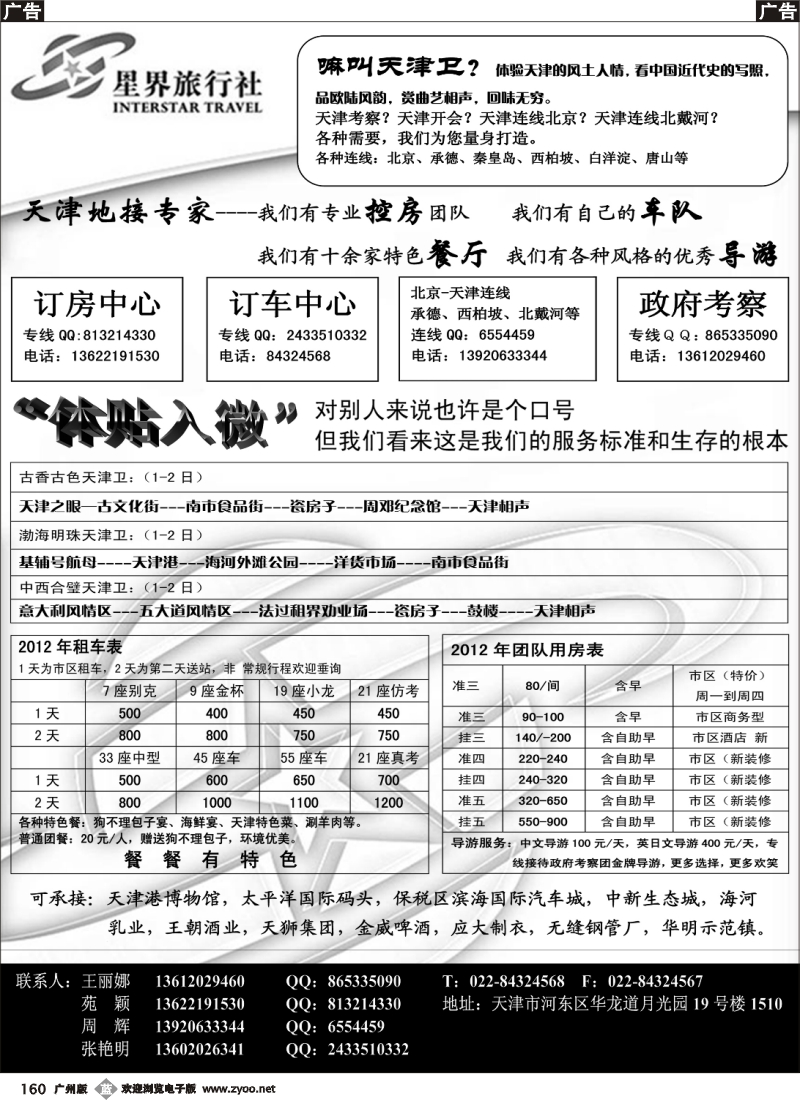 广告
广告
星界旅行社
INTERSTAR TRAVEL
嘛叫天津卫？ 体验天津的风土人情，看中国近代史的写照，
品欧陆风韵，赏曲艺相声，回味无穷。
天津考察？天津开会？天津连线北京？天津连线北戴河？
各种需要，我们为您量身打造。
各种连线：北京、承德、秦皇岛、西柏坡、白洋淀、唐山等
天津地接专家----我们有专业控房团队 我们有自己的车队
我们有十余家特色餐厅 我们有各种风格的优秀导游
订房中心
专线QQ:813214330
电话：13622191530
订车中心
专线QQ：2433510332
电话：84324568
北京-天津连线
承德、西柏坡、北戴河等
连线QQ：6554459
电话：13920633344
政府考察
专线ＱＱ：865335090
电话：13612029460
“体贴入微” 对别人来说也许是个口号
但我们看来这是我们的服务标准和生存的根本
古香古色天津卫：（1-2 日）
天津之眼—古文化街---南市食品街---瓷房子---周邓纪念馆---天津相声
渤海明珠天津卫：（1-2 日）
基辅号航母----天津港---海河外滩公园----洋货市场----南市食品街
中西合璧天津卫：（1-2 日）
意大利风情区---五大道风情区---法过租界劝业场---瓷房子---鼓楼----天津相声
2012 年租车表
1 天为市区租车，2 天为第二天送站，非 常规行程欢迎垂询
7 座别克 9 座金杯 19 座小龙 21 座仿考
1 天 500 400 450 450
2 天 800 800 750 750
33 座中型 45 座车 55 座车 21 座真考
1 天 500 600 650 700
2 天 800 1000 1100 1200
各种特色餐：狗不理包子宴、海鲜宴、天津特色菜、涮羊肉等。
普通团餐：20 元/人，赠送狗不理包子，环境优美。
餐 餐 有 特 色
2012 年团队用房表
准三 80/间 含早 市区（特价）周一到周四
准三 90-100 含早 市区商务型
挂三 140/-200 含自助早 市区酒店 新
准四 220-240 含自助早 市区（新装修
挂四 240-320 含自助早 市区（新装修
准五 320-650 含自助早 市区（新装修
挂五 550-900 含自助早 市区（新装修
导游服务：中文导游 100 元/天，英日文导游 400 元/天，专
线接待政府考察团金牌导游，更多选择，更多欢笑
可承接：天津港博物馆，太平洋国际码头，保税区滨海国际汽车城，中新生态城，海河
乳业，王朝酒业，天狮集团，金威啤酒，应大制衣，无缝钢管厂，华明示范镇。
联系人：王丽娜 13612029460 QQ：865335090 T：022-84324568 F：022-84324567
苑 颖 13622191530 QQ：813214330 地址：天津市河东区华龙道月光园 19 号楼 1510
周 辉 13920633344 QQ：6554459
张艳明 13602026341 QQ：2433510332
160 广州版 蓝 欢迎浏览电子版 www.zyoo.net